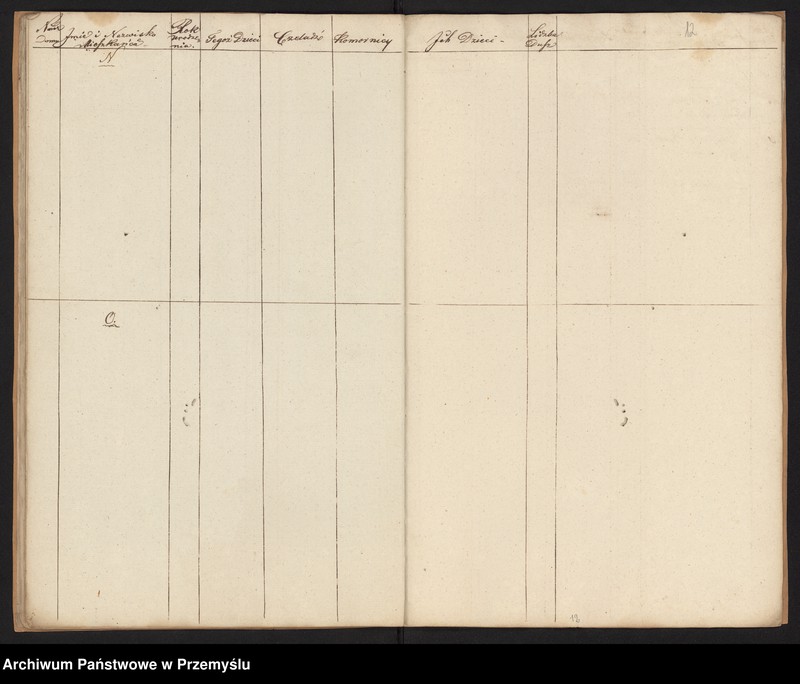 Imie i Nazwisko
Mieszkańca
N
Rok
urodze-
nia.
Tegoż Dzieci
Czeladź
Komornicy
Ich Dzieci -
Liczba
Dusz
12
O.
12
Archiwum Państwowe w Przemyślu